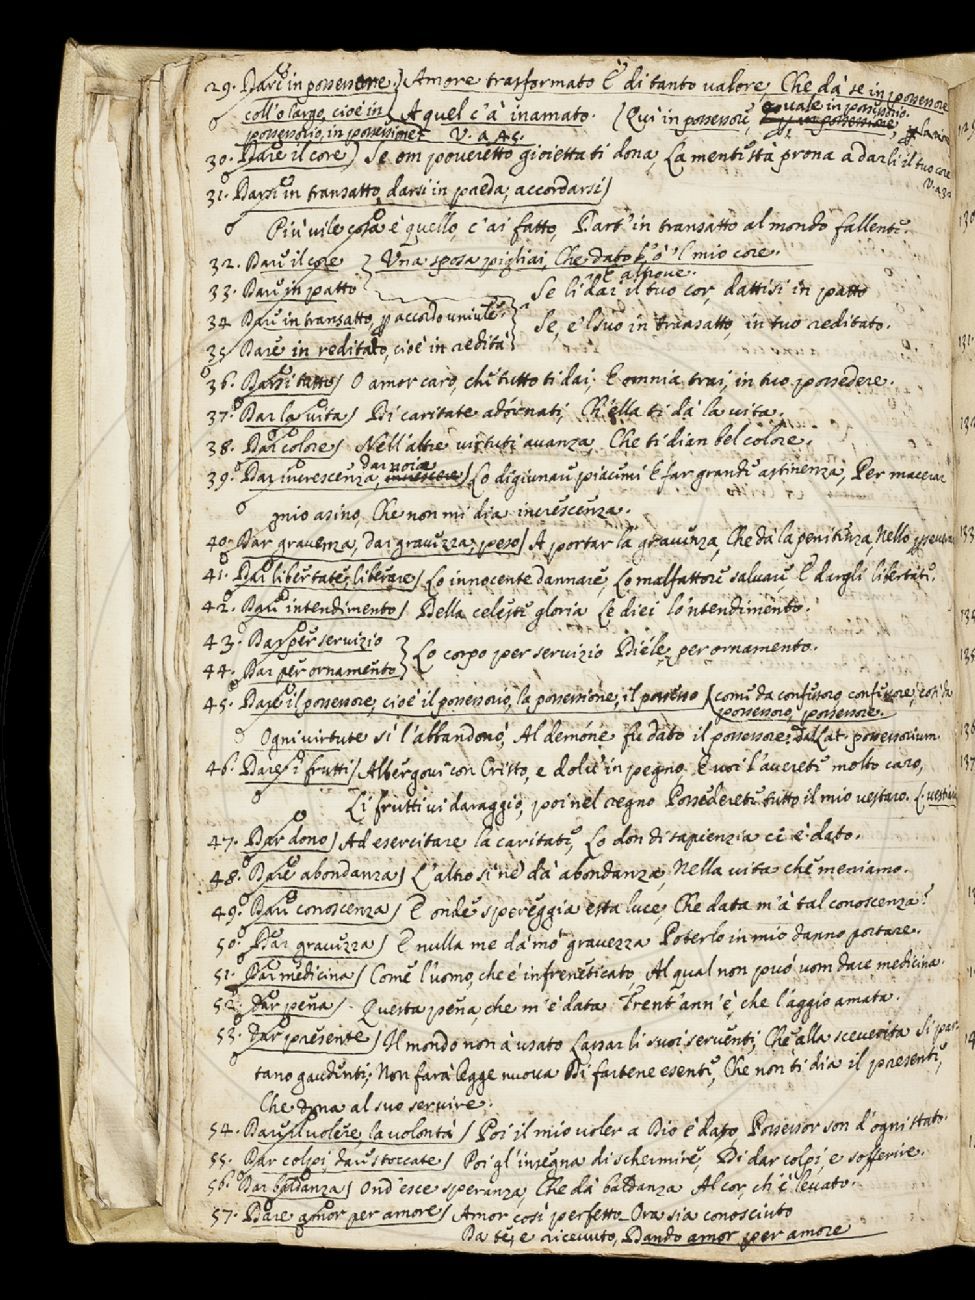 29. Dare in possessore) Amore trasformato È di tanto valore, Che dà se in possessore
coll' o largo, cioè in A quel c'à inamato. (Qui in possessori,
possessorio, in possessione V. a 45.
30. Dare il core) Se om poveretto gioietta ti dona, La mente stà prona a darli il tuo core
31. Darsi in transatto, darsi in preda, accordarsi)
Più vile cosa è quello, c'ai fatto, Dart' in transatto al mondo fallente.
32. Dare il core } Una sposa pigliai, Che dato l' ò 'l mio core.
e altrove.
33. Dare in patto Se li dai il tuo cor, dattisi in patto
34 Dare in transatto, p accordo univle. Se, e 'l suo in transatto, in tuo reditato.
35 Dare in reditato, cioè in redità
36. Darsi tutto) O amor caro, che tutto ti dai, E omnia trai, in tuo possedere.
37. Dar la vita) Di caritate adórnati, Ch'ella ti dà la vita.
38. Dar colore) Nell' altre virtuti avanza, Che ti dian bel colore.
39. Dar increscenza, dar noia) Lo digiunare piacemi E far grande astinenza, Per macerar
mio asino, Che non mi dia increscenza.
40. Dar gravenza, dar gravezza, peso) A portar la gravenza, Che dà la penitenza, Nello
41. Dar libertate, liberare) Lo innocente dannare, Lo malfattore salvare E dargli libertate.
42. Dare intendimento) Della celeste gloria Le diei lo 'ntendimento.
43. Dar per servizio } Lo corpo per servizio Diéle, per ornamento.
44. Dar per ornamento
45. Dare il possessore, cioè il possessorio, la possessione, il possesso (come da confessoro confessore, così da
possessoro, possessore.
Ogni virtute si l'abbandonò, Al demóne fu dato il possessore; dal Lat. possessorium.
46. Dare i frutti) Albergovi con Cristo, e dolce in pegno E voi l'averete molto caro,
Li frutti vi daraggio, poi nel regno Possederete tutto il mio vestaro.
47. Dar dono) Ad esercitare la caritate, Lo don di sapienzia ci è dato.
48. Dare abondanza) L'altro si ne dà abondanza, Nella vita che meniamo.
49. Dare conoscenza) E onde spereggia esta luce, Che data m'à tal conoscenza?
50. Dar gravezza) E nulla me dà mò gravezza Poterlo in mio danno portare.
51. Dar medicina) Come l'uomo, che è infreneticato, Al qual non può uom dare medicina.
52. Dar pena) Questa pena, che m'è data Trent'ann'è, che l'aggio amata.
53. Dar presente) Il mondo non à usato Lassar li suoi serventi, Che alla sceverita Si par-
tano gaudenti; Non farà legge nuova Di fartene esente, Che non ti dia il presente,
Che dona al suo servire.
54. Dare il volere, la volontà) Poi il mio voler a Dio è dato, Possessor son d'ogni stato.
55. Dar colpi, dare stoccate) Poi gl'insegna di schermire, Di dar colpi, e sofferire.
56. Dar baldanza) Ond'esce speranza, Che dà baldanza Al cor, ch'è levato.
57. Dare amor per amore) Amor così perfetto Ora sia conosciuto
Da te, e ricevuto, Dando amor per amore